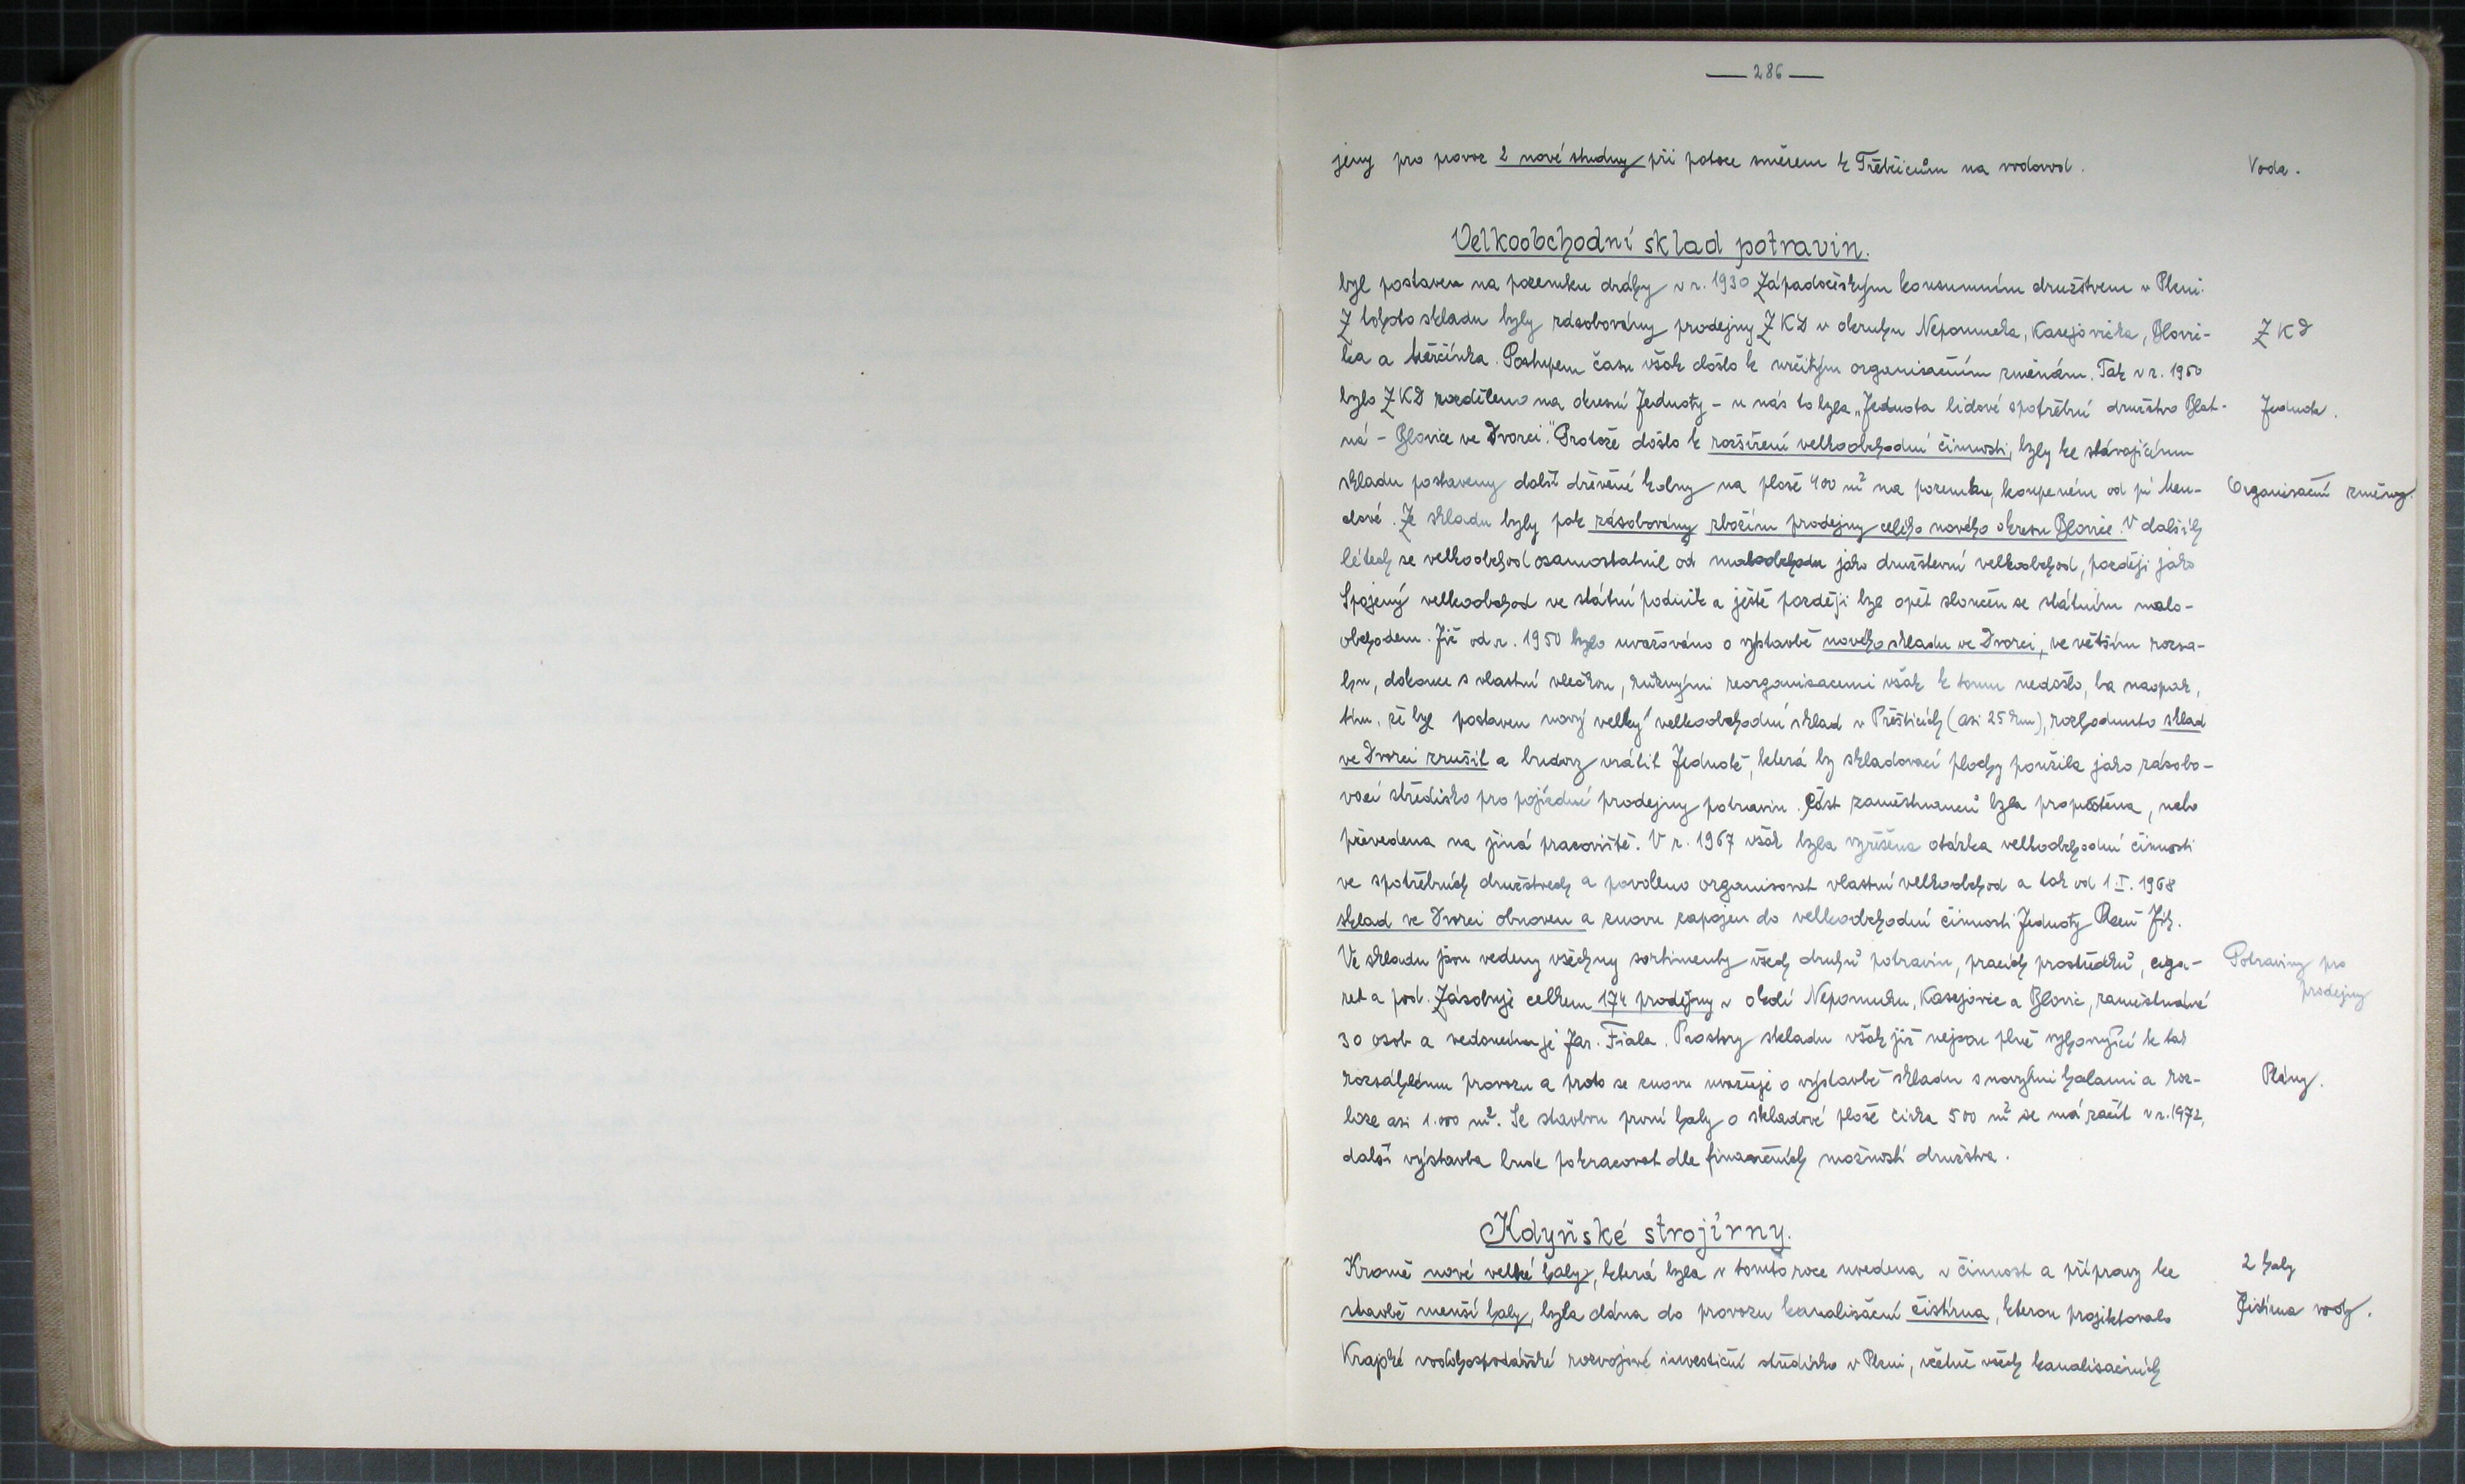 — 286 —
jeny pro provoz 2 nové studny při potoce směrem k Třebčicům na vodovod.
Voda.
Velkoobchodní sklad potravin.
byl postaven na pozemku dráhy v r. 1930 Západočeským konsumním družstvem v Plzni.
Z tohoto skladu byly zásobovány prodejny ZKD v okruhu Nepomucka, Kasejovicka, Blovic-
ZKD
ka a Měčínka. Postupem času však došlo k určitým organisačním změnám. Tak v r. 1950
bylo ZKD rozděleno na okresní Jednoty - u nás to byla „Jednota lidové spotřební družstvo Blat-
Jednota.
ná - Blovice ve Dvorci." Protože došlo k rozšíření velkoobchodní činnosti, byly ke stávajícímu
skladu postaveny další dřevěné kolny na ploše 400 m² na pozemku, koupeném od pí Men-
Organisační změny.
dlové. Ze skladu byly pak zásobovány zbožím prodejny celého nového okresu Blovice. V dalších
létech se velkoobchod osamostatnil od maloobchodu jako družstevní velkoobchod, později jako
Spojený velkoobchod ve státní podnik a ještě později byl opět sloučen se státním malo-
obchodem. Již od r. 1950 bylo uvažováno o výstavbě nového skladu ve Dvorci, ve větším rozsa-
hu, dokonce s vlastní vlečkou, různými reorganisacemi však k tomu nedošlo, ba naopak,
tím, že byl postaven nový velký velkoobchodní sklad v Přešticích (asi 25 km), rozhodnuto sklad
ve Dvorci zrušit a budovy vrátit Jednotě, která by skladovací plochy použila jako zásobo-
vací středisko pro pojízdné prodejny potravin. Část zaměstnanců byla propuštěna, nebo
převedena na jiná pracoviště. V r. 1967 však byla vyřešena otázka velkoobchodní činnosti
ve spotřebních družstvech a povoleno organisovat vlastní velkoobchod a tak od 1.I. 1968
sklad ve Dvorci obnoven a znovu zapojen do velkoobchodní činnosti Jednoty Plzeň Jih.
Ve skladu jsou vedeny všechny sortimenty všech druhů potravin, pracích prostředků, ciga-
Potraviny pro
prodejny
ret a pod. Zásobuje celkem 174 prodejny v okolí Nepomuku, Kasejovic a Blovic, zaměstnává
30 osob a vedoucím je Jar. Fiala. Prostory skladu však již nejsou plně vyhovující k tak
rozsáhlému provozu a proto se znovu uvažuje o výstavbě skladu s novými halami a roz-
Plány.
loze asi 1.000 m². Se stavbou první haly o skladové ploše cirka 500 m² se má začít v r. 1972,
další výstavba bude pokračovat dle finančních možností družstva.
Kdyňské strojírny.
Kromě nové velké haly, která byla v tomto roce uvedena v činnost a přípravy ke
2 haly
stavbě menší haly, byla dána do provozu kanalisační čistírna, kterou projektovalo
Čistírna vody.
Krajské vodohospodářské rozvojové investiční středisko v Plzni, včetně všech kanalisačních